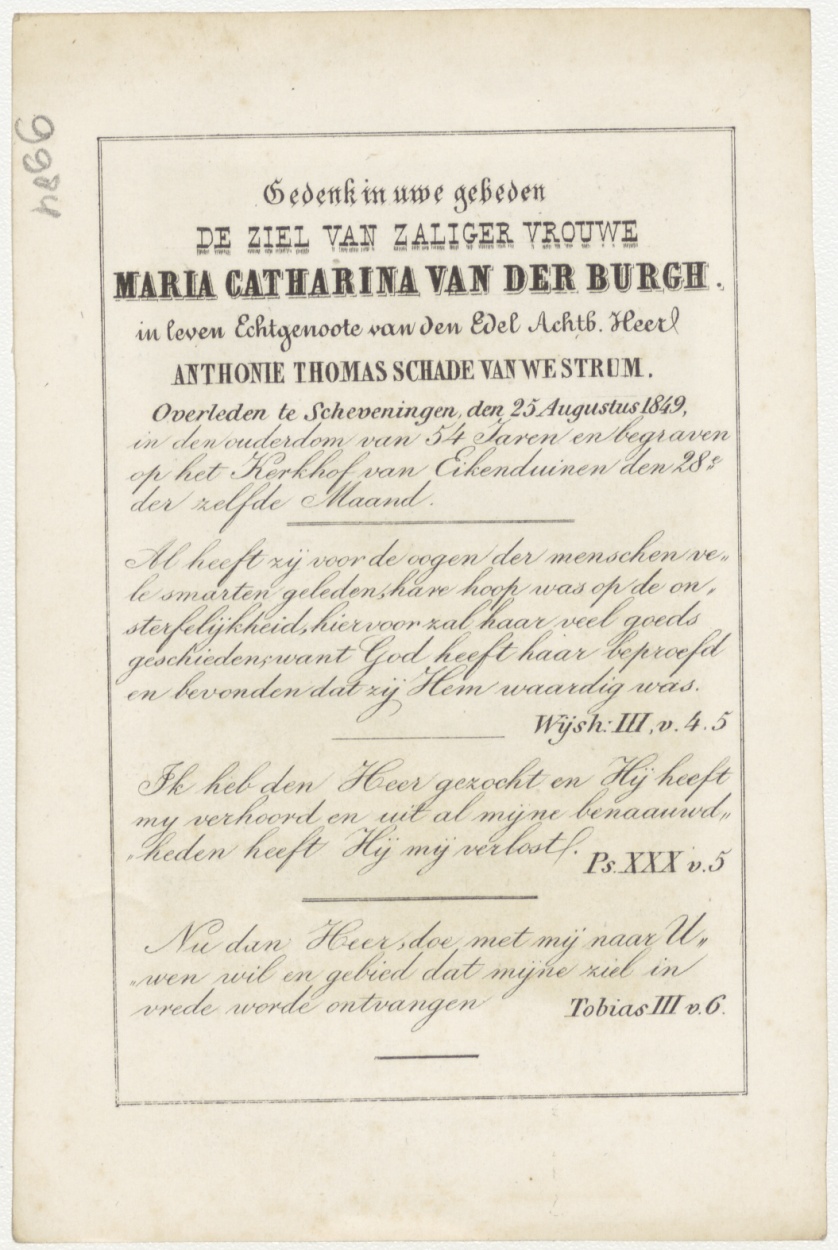 9984
Gedenk in uwe gebeden
DE ZIEL VAN ZALIGER VROUWE
MARIA CATHARINA VAN DER BURGH.
in leven Echtgenoote van den Edel Achtb. Heer
ANTHONIE THOMAS SCHADE VAN WESTRUM.
Overleden te Scheveningen, den 25 Augustus 1849,
in den ouderdom van 54 Jaren en begraven
op het Kerkhof van Eikenduinen den 28e
der zelfde Maand.
Al heeft zij voor de oogen der menschen ve„
le smarten geleden, hare hoop was op de on„
sterfelijkheid, hiervoor zal haar veel goeds
geschieden; want God heeft haar beproefd
en bevonden dat zij Hem waardig was.
Wijsh: III, v. 4. 5
Ik heb den Heer gezocht en Hij heeft
my verhoord en uit al mijne benaauwd„
„heden heeft Hij mij verlost.
Ps. XXX v. 5
Nu dan Heer, doe met mij naar U„
„wen wil en gebied dat mijne ziel in
vrede worde ontvangen
Tobias III v. 6.